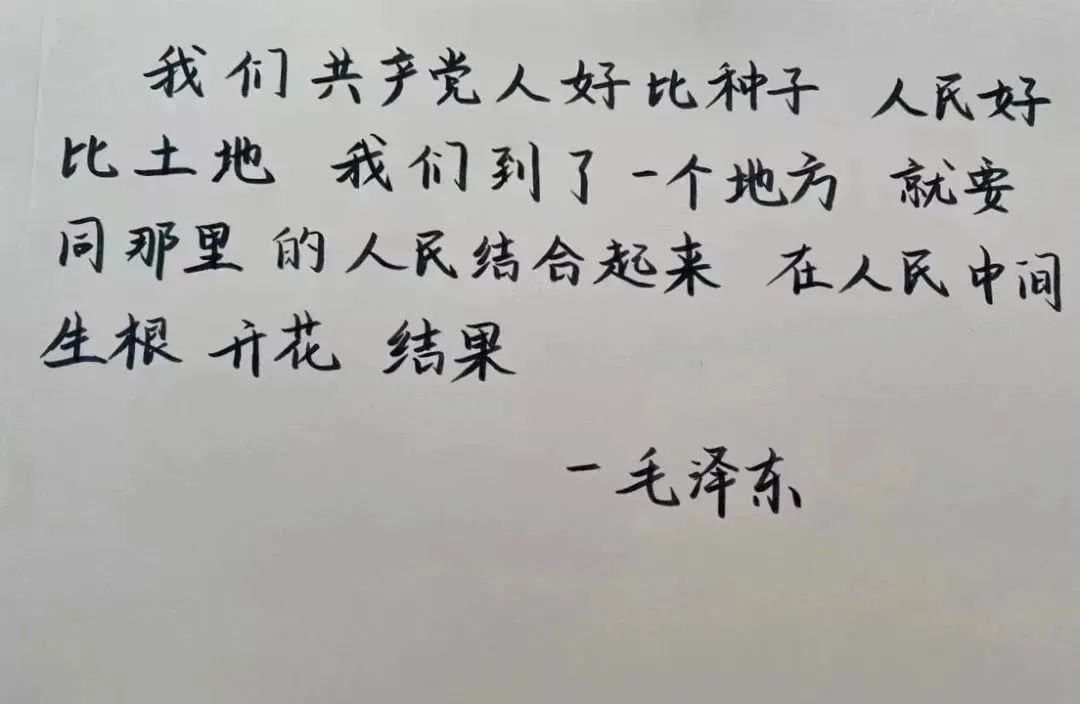 我们共产党人好比种子 人民好
比土地 我们到了一个地方 就要
同那里的人民结合起来 在人民中间
生根 开花 结果
一毛泽东